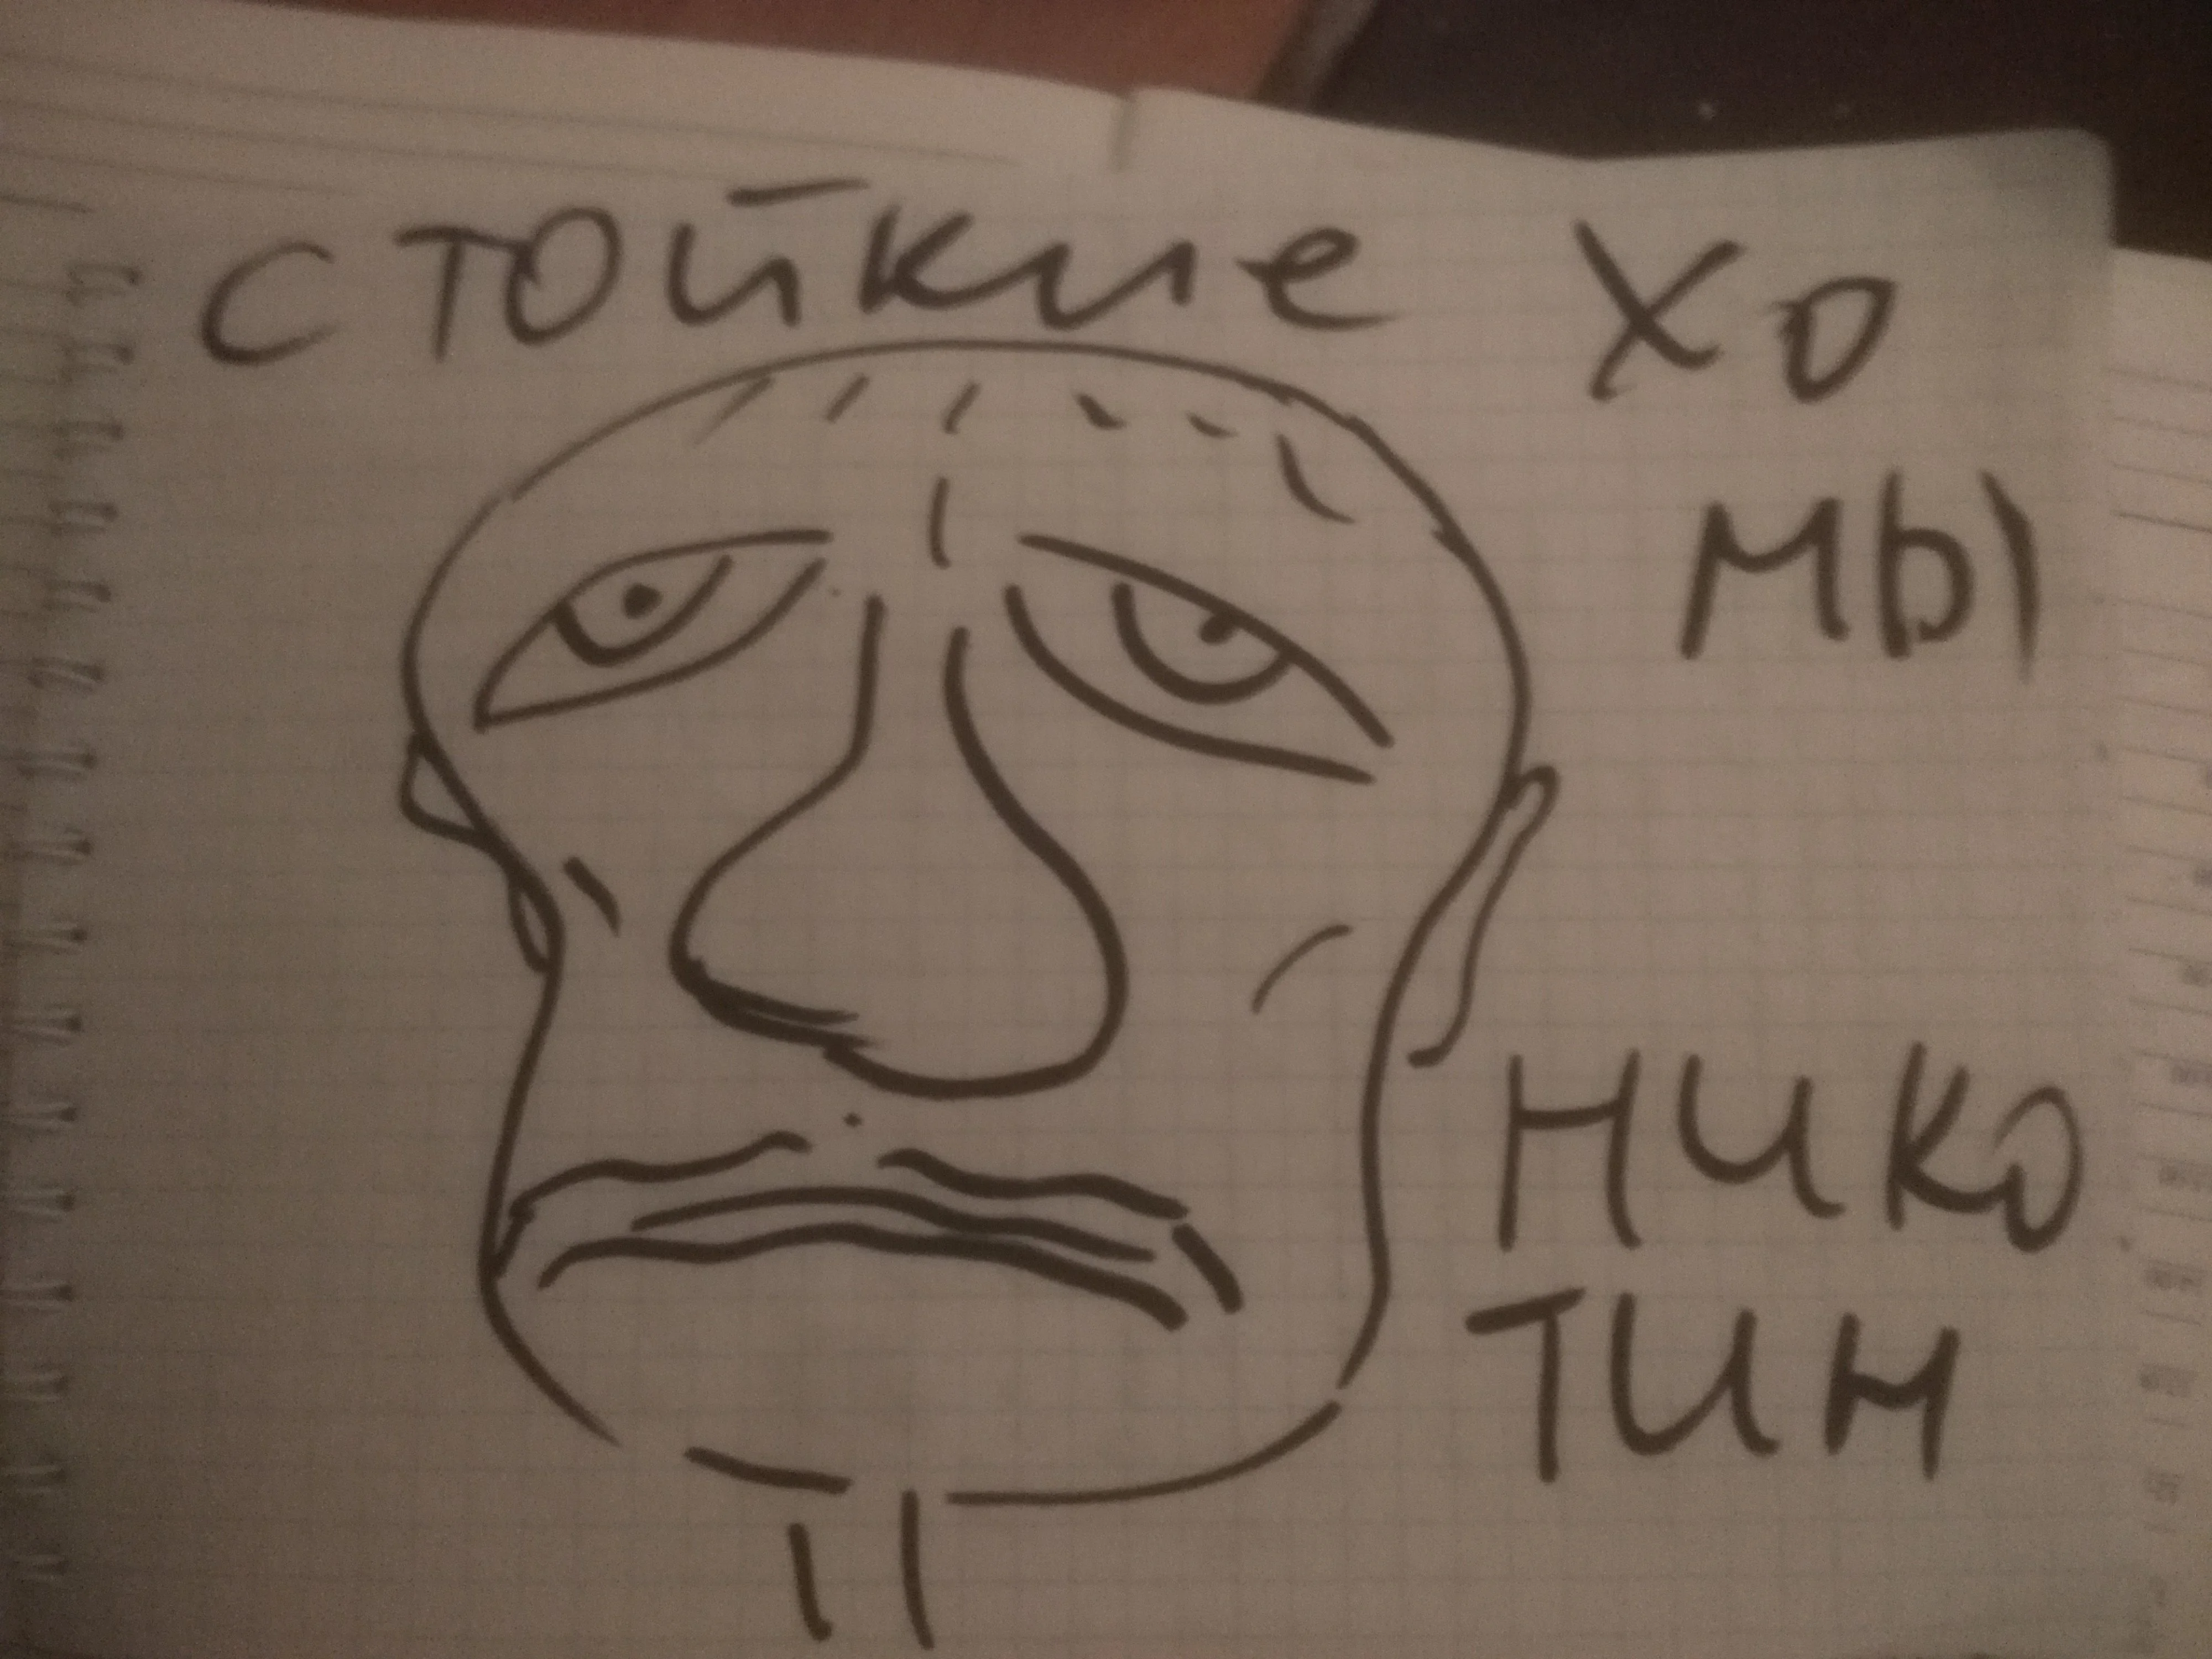 стойкие хо
мы
нико
тин